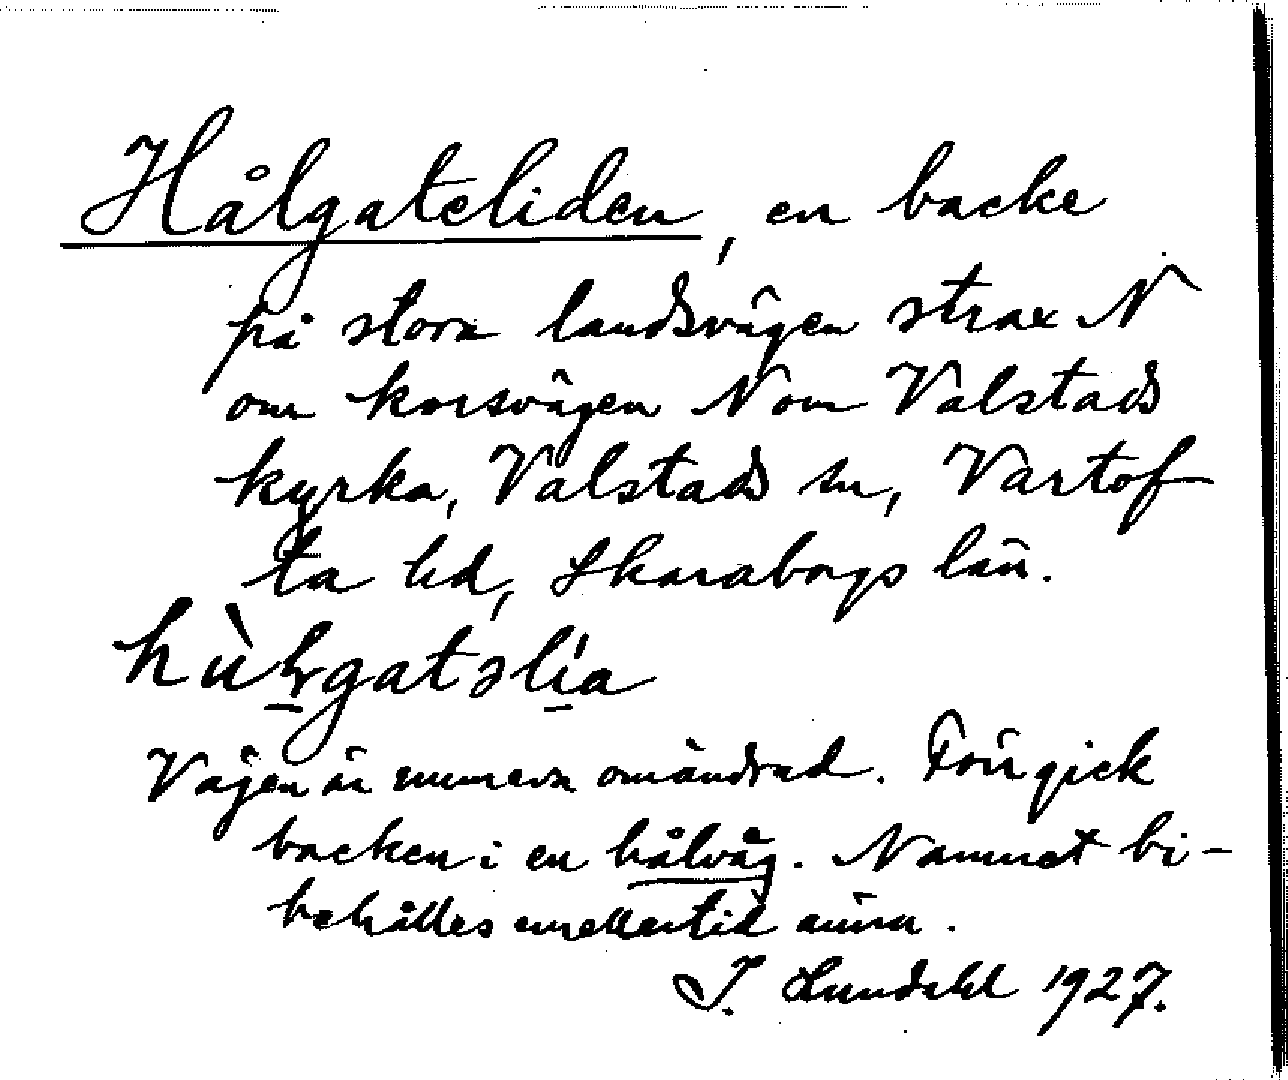 Hålgateliden, en backe
på stora landsvägen strax N
om korsvägen N om Valstads
kyrka, Valstads sn, Vartof
ta hd, Skaraborgs län.
Vägen är numera omändrad. Förr gick
backen i en hålväg. Namnet bi-
behålles emellertid ännu.
I. Lundahl 1927.